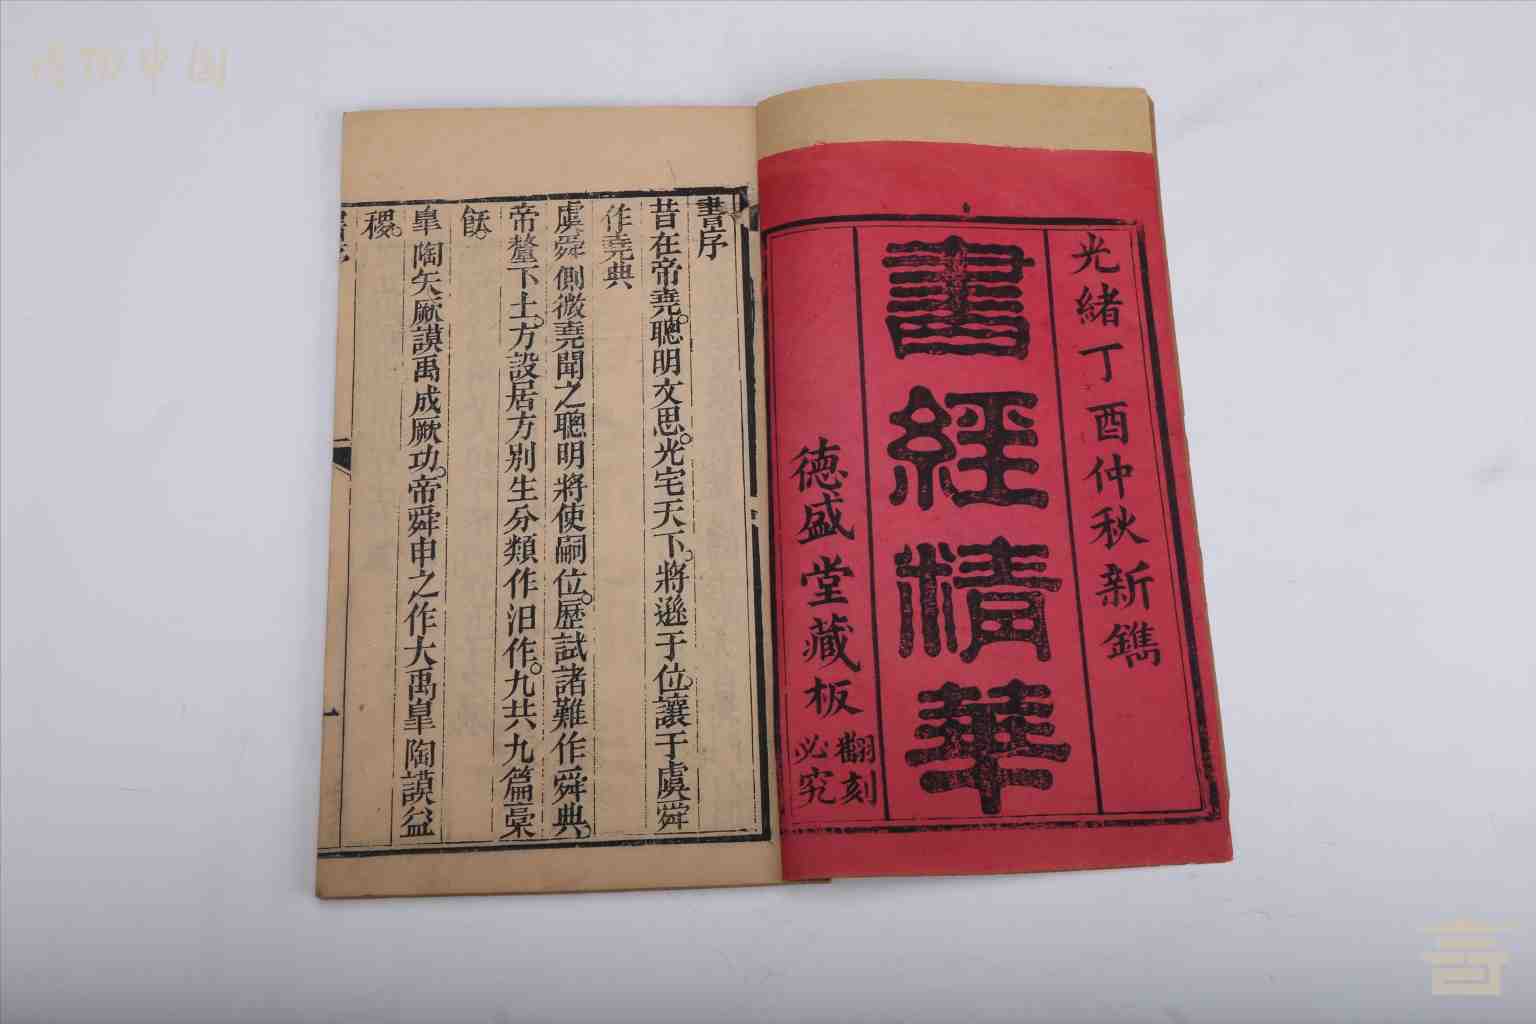 光緒丁酉仲秋新鐫
書經精華
德盛堂藏板
翻刻
必究
書序
昔在帝堯。聰明文思。光宅天下。將遜于位。讓于虞舜
作堯典
虞舜側微堯聞之聰明將使嗣位。歷試諸難作舜典。
帝釐下土。方設居方別生分類作汨作。九共九篇槀
飫。
皐陶矢厥謨禹成厥功。帝舜申之作大禹皐陶謨益
稷。
中国